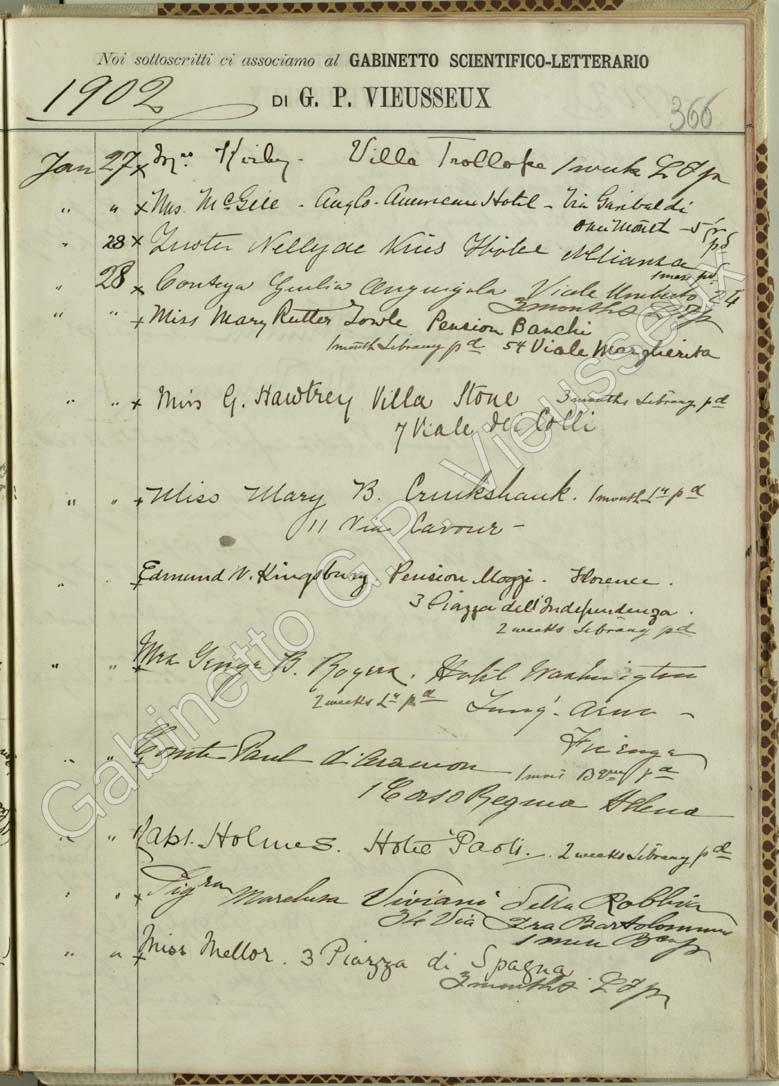 Noi sottoscritti ci associamo al GABINETTO SCIENTIFICO-LETTERARIO
1902 DI G. P. VIEUSSEUX 366
Jan 27 x Mrs Kirby - Villa Trollope 1 week L
" " x Mrs. McGee - Anglo-American Hotel - Via Garibaldi
one month
" 28 x Nelly de Hôtel Alliança
1 mois pd
" 28 x Giulia Viale Umberto 24
3 months
" " + Miss Mary Rutter Towle Pension Banchi
1 month Library pd 54 Viale Margherita
" " x Miss G. Hawtrey Villa Stone 3 months Library pd
7 Viale dei Colli
" " + Miss Mary B. Cruikshank. 1 month Ly pd
11 Via Cavour -
" + Edmund N. Kingsbury. Pension Moggi. Florence.
3 Piazza dell'Independenza.
2 weeks Library pd
" " + Mrs George B. Rogers. Hotel Washington
2 weeks Ly pd Lung' Arno -
Firenze
" " + Comte Paul d'Aramon 1 mois pd
1 Corso Regina Helena
" " Capt. Holmes. Hotel Paoli. 2 weeks Library pd
" " x Sigra Viviani della Robbia
34 Via Fra Bartolommeo
" " + Miss Mellor. 3 Piazza di Spagna
3 months L
Gabinetto G.P. Vieusseux